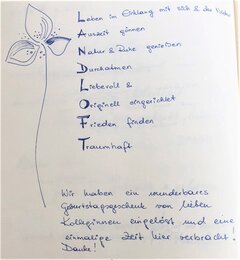 Leben im Einklang mit sich & der Natur
Auszeit gönnen
Natur & Ruhe genießen
Durchatmen
Liebevoll &
Originell eingerichtet
Frieden finden
Traumhaft
Wir haben ein wunderbares
Geburtstagsgeschenk von lieben
Kolleginnen eingelöst und eine
einmalige Zeit hier verbracht!
Danke!